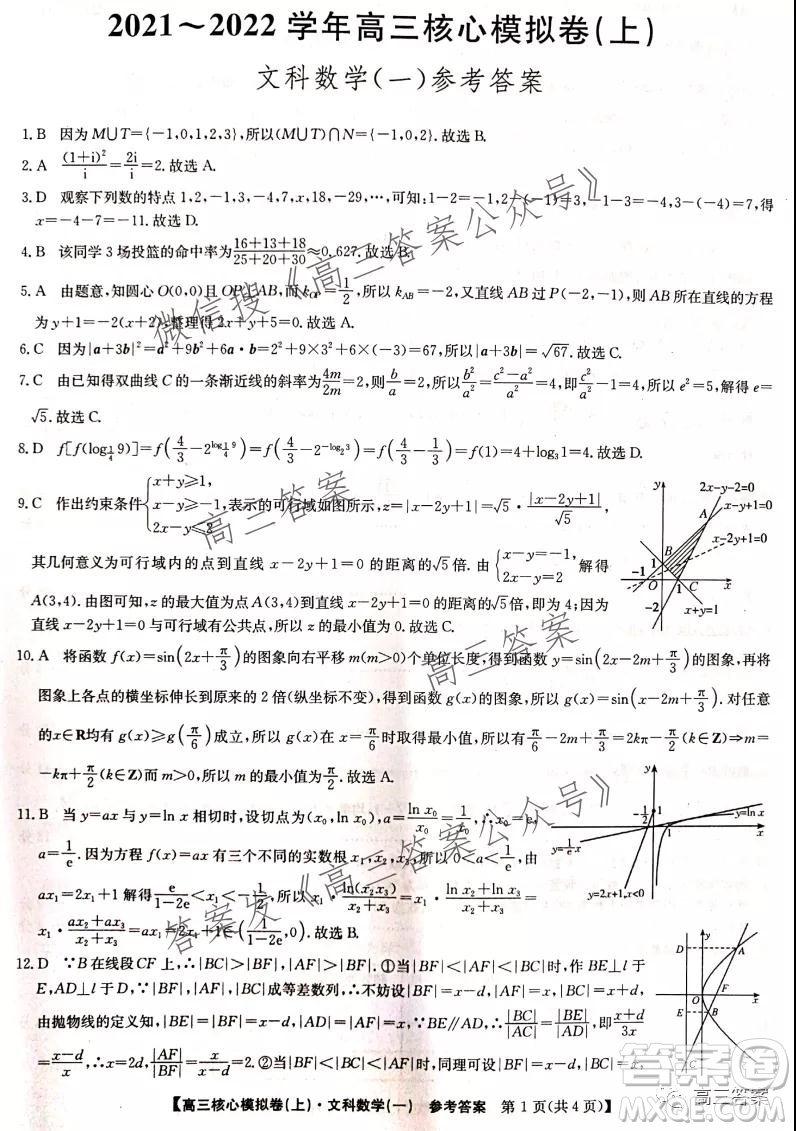 2021～2022 学年高三核心模拟卷(上)
文科数学(一)参考答案
1. B 因为M∪T={-1,0,1,2,3},所以(M∪T)∩N={-1,0,2}.故选 B.
2. A (1+i)²/i=2i/i=2.故选 A.
3. D 观察下列数的特点 1,2,-1,3,-4,7,x,18,-29,…,可知:1-2=-1,2-(-1)=3,-1-3=-4,3-(-4)=7,得
x=-4-7=-11.故选 D.
4. B 该同学 3 场投篮的命中率为(16+13+18)/(25+20+30)≈0.627.故选 B.
5. A 由题意,知圆心 O(0,0)且 OP⊥AB,而 k_OP=1/2,所以 k_AB=-2,又直线 AB 过 P(-2,-1),则 AB 所在直线的方程
为 y+1=-2(x+2),整理得 2x+y+5=0.故选 A.
6. C 因为|a+3b|²=a²+9b²+6a·b=2²+9×3²+6×(-3)=67,所以|a+3b|=√67.故选 C.
7. C 由已知得双曲线 C 的一条渐近线的斜率为4m/2m=2,则b/a=2,所以b²/a²=(c²-a²)/a²=4,即c²/a²-1=4,所以 e²=5,解得 e=
√5.故选 C.
8. D f[f(log_{1/4}9)]=f(4/3-2^{log_{1/4}9})=f(4/3-2^{-log₂3})=f(4/3-1/3)=f(1)=4+log₃1=4.故选 D.
9. C 作出约束条件{x+y≥1, x-y≥-1, 2x-y≤2 表示的可行域如图所示,z=|x-2y+1|=√5·|x-2y+1|/√5,
其几何意义为可行域内的点到直线 x-2y+1=0 的距离的√5倍. 由{x-y=-1, 2x-y=2 解得
A(3,4).由图可知,z 的最大值为点 A(3,4)到直线 x-2y+1=0 的距离的√5倍,即为 4;因为
直线 x-2y+1=0 与可行域有公共点,所以 z 的最小值为 0.故选 C.
y
2x-y-2=0
x-y+1=0
x-2y+1=0
A
B
1
-1
O
1
C
x
-2
x+y=1
10. A 将函数 f(x)=sin(2x+π/3)的图象向右平移 m(m>0)个单位长度,得到函数 y=sin(2x-2m+π/3)的图象,再将
图象上各点的横坐标伸长到原来的 2 倍(纵坐标不变),得到函数 g(x)的图象,所以 g(x)=sin(x-2m+π/3). 对任意
的x∈R均有 g(x)≥g(π/6)成立,所以 g(x)在 x=π/6时取得最小值,所以有π/6-2m+π/3=2kπ-π/2(k∈Z)⇒m=
-kπ+π/2(k∈Z)而 m>0,所以 m 的最小值为π/2.故选 A.
11. B 当 y=ax 与 y=ln x 相切时,设切点为(x₀,ln x₀),a=ln x₀/x₀=1/x₀,∴x₀=e,
a=1/e. 因为方程 f(x)=ax 有三个不同的实数根 x₁,x₂,x₃,所以 0<a<1/e,由
ax₁=2x₁+1 解得e/(1-2e)<x₁<-1/2,所以 x₁·ln(x₂x₃)/(x₂+x₃)=x₁·(ln x₂+ln x₃)/(x₂+x₃)=
x₁·(ax₂+ax₃)/(x₂+x₃)=ax₁=2x₁+1∈(1/(1-2e),0).故选 B.
y
1
-1/2
y=ln x
y=1/e x
1
x
y=2x+1,x<0
12. D ∵B 在线段 CF 上,∴|BC|>|BF|,∴①当|BF|<|AF|<|BC|时,作 BE⊥l 于
E,AD⊥l 于 D,∵|BF|,|AF|,|BC|成等差数列,∴不妨设|BF|=x-d,|AF|=x,|BC|=x+d,
由抛物线的定义知,|BE|=|BF|=x-d,|AD|=|AF|=x,∵BE∥AD,∴|BC|/|AC|=|BE|/|AD|,即(x+d)/3x
=(x-d)/x,∴x=2d,|AF|/|BF|=x/(x-d)=2. ②当|BF|<|BC|<|AF|时,同理可设|BF|=x-d,|BC|=x,
y
D
A
O
F
x
E
B
【高三核心模拟卷(上)·文科数学(一) 参考答案 第 1 页(共 4 页)】
微信搜《高三答案公众号》
高三答案
高三答案
答案发《高三答案公众号》
高三答案
答案圈
MXQE.COM